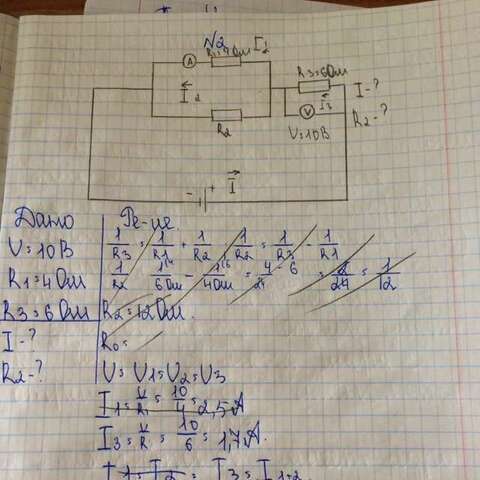 N2
R1=4Ом I2
A
R3=6Ом
I-?
I2
V
I3
R2
R2-?
V=10В
- + I
Дано
V=10В
R1=4Ом
R3=6Ом
I-?
R2-?
Ре-ие.
1/R3 = 1/R1 + 1/R2 1/R2 = 1/R3 - 1/R1
1/R2 1/6Ом - 1/4Ом = 4-6/24 = 2/24 = 1/12
R2=12Ом.
R0=
V=V1=V2=V3
I1=V/R=10/4=2,5A
I3=V/R=10/6=1,7A.
I1=I2= I3=I1-2